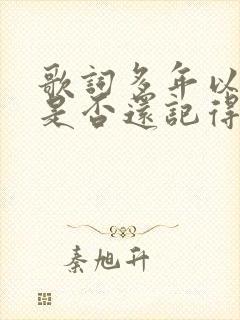 歌詞多年以
是否還記得
秦旭升